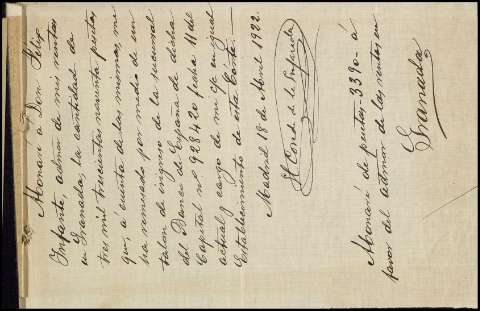 Abonaré a Don Félix
Infante, admor de mis rentas
en Granada, la cantidad de
tres mil trescientas noventa pesetas
que, á cuenta de las mismas, me
ha remesado por medio de un
talon de ingreso de la sucursal
del Banco de España de dicha
Capital nº 928420 fecha 11 del
actual y cargo de mi c/c en igual
Establecimiento de esta Córte.
Madrid 18 de Abril 1922.
El Conde de la
Abonaré de pesetas - 3390 - á
favor del admor de las rentas en
Granada